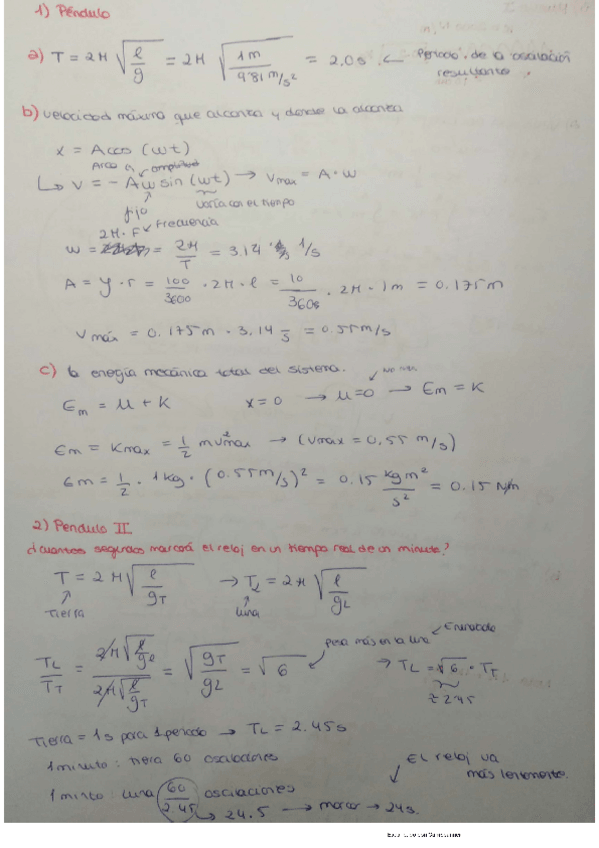 1) Péndulo
a) T = 2π √(l/g) = 2π √(1m / 9'81 m/s²) = 2,0 s ← Periodo de la oscilación resultante
b) velocidad máxima que alcanza y donde la alcanza
x = A cos (wt)
Arco amplitud
↳ v = - A w sin (wt) → vmax = A · w
fijo varía con el tiempo
2π · F ← Frecuencia
w = = 2π/T = 3.14 1/s
A = φ · r = 100/3600 · 2π · l = 10/360s · 2π · 1m = 0.175m
Vmáx = 0.175m · 3.14 1/s = 0.55m/s
c) la energía mecánica total del sistema.
Em = U + K x = 0 → U = 0 → Em = K
Em = Kmax = 1/2 mv²max → (Vmax = 0,55 m/s)
Em = 1/2 · 1kg · (0.55m/s)² = 0.15 kg m²/s² = 0.15 N/m
2) Pendulo II
¿cuantos segundos marcará el reloj en un tiempo real de un minuto?
T = 2π √(l/gT) → TL = 2π √(l/gL)
Tierra luna
TL/TT = 2π√(l/gL) / 2π√(l/gT) = √(gT/gL) = √6 → TL = √6 · TT
≈ 2'45
Tierra = 1s para 1 periodo → TL = 2.45s
1 minuto: tierra 60 oscilaciones
El reloj va más lentamente.
1 minto: luna 60/2.45 oscilaciones
↳ 24.5 → marca → 24s.